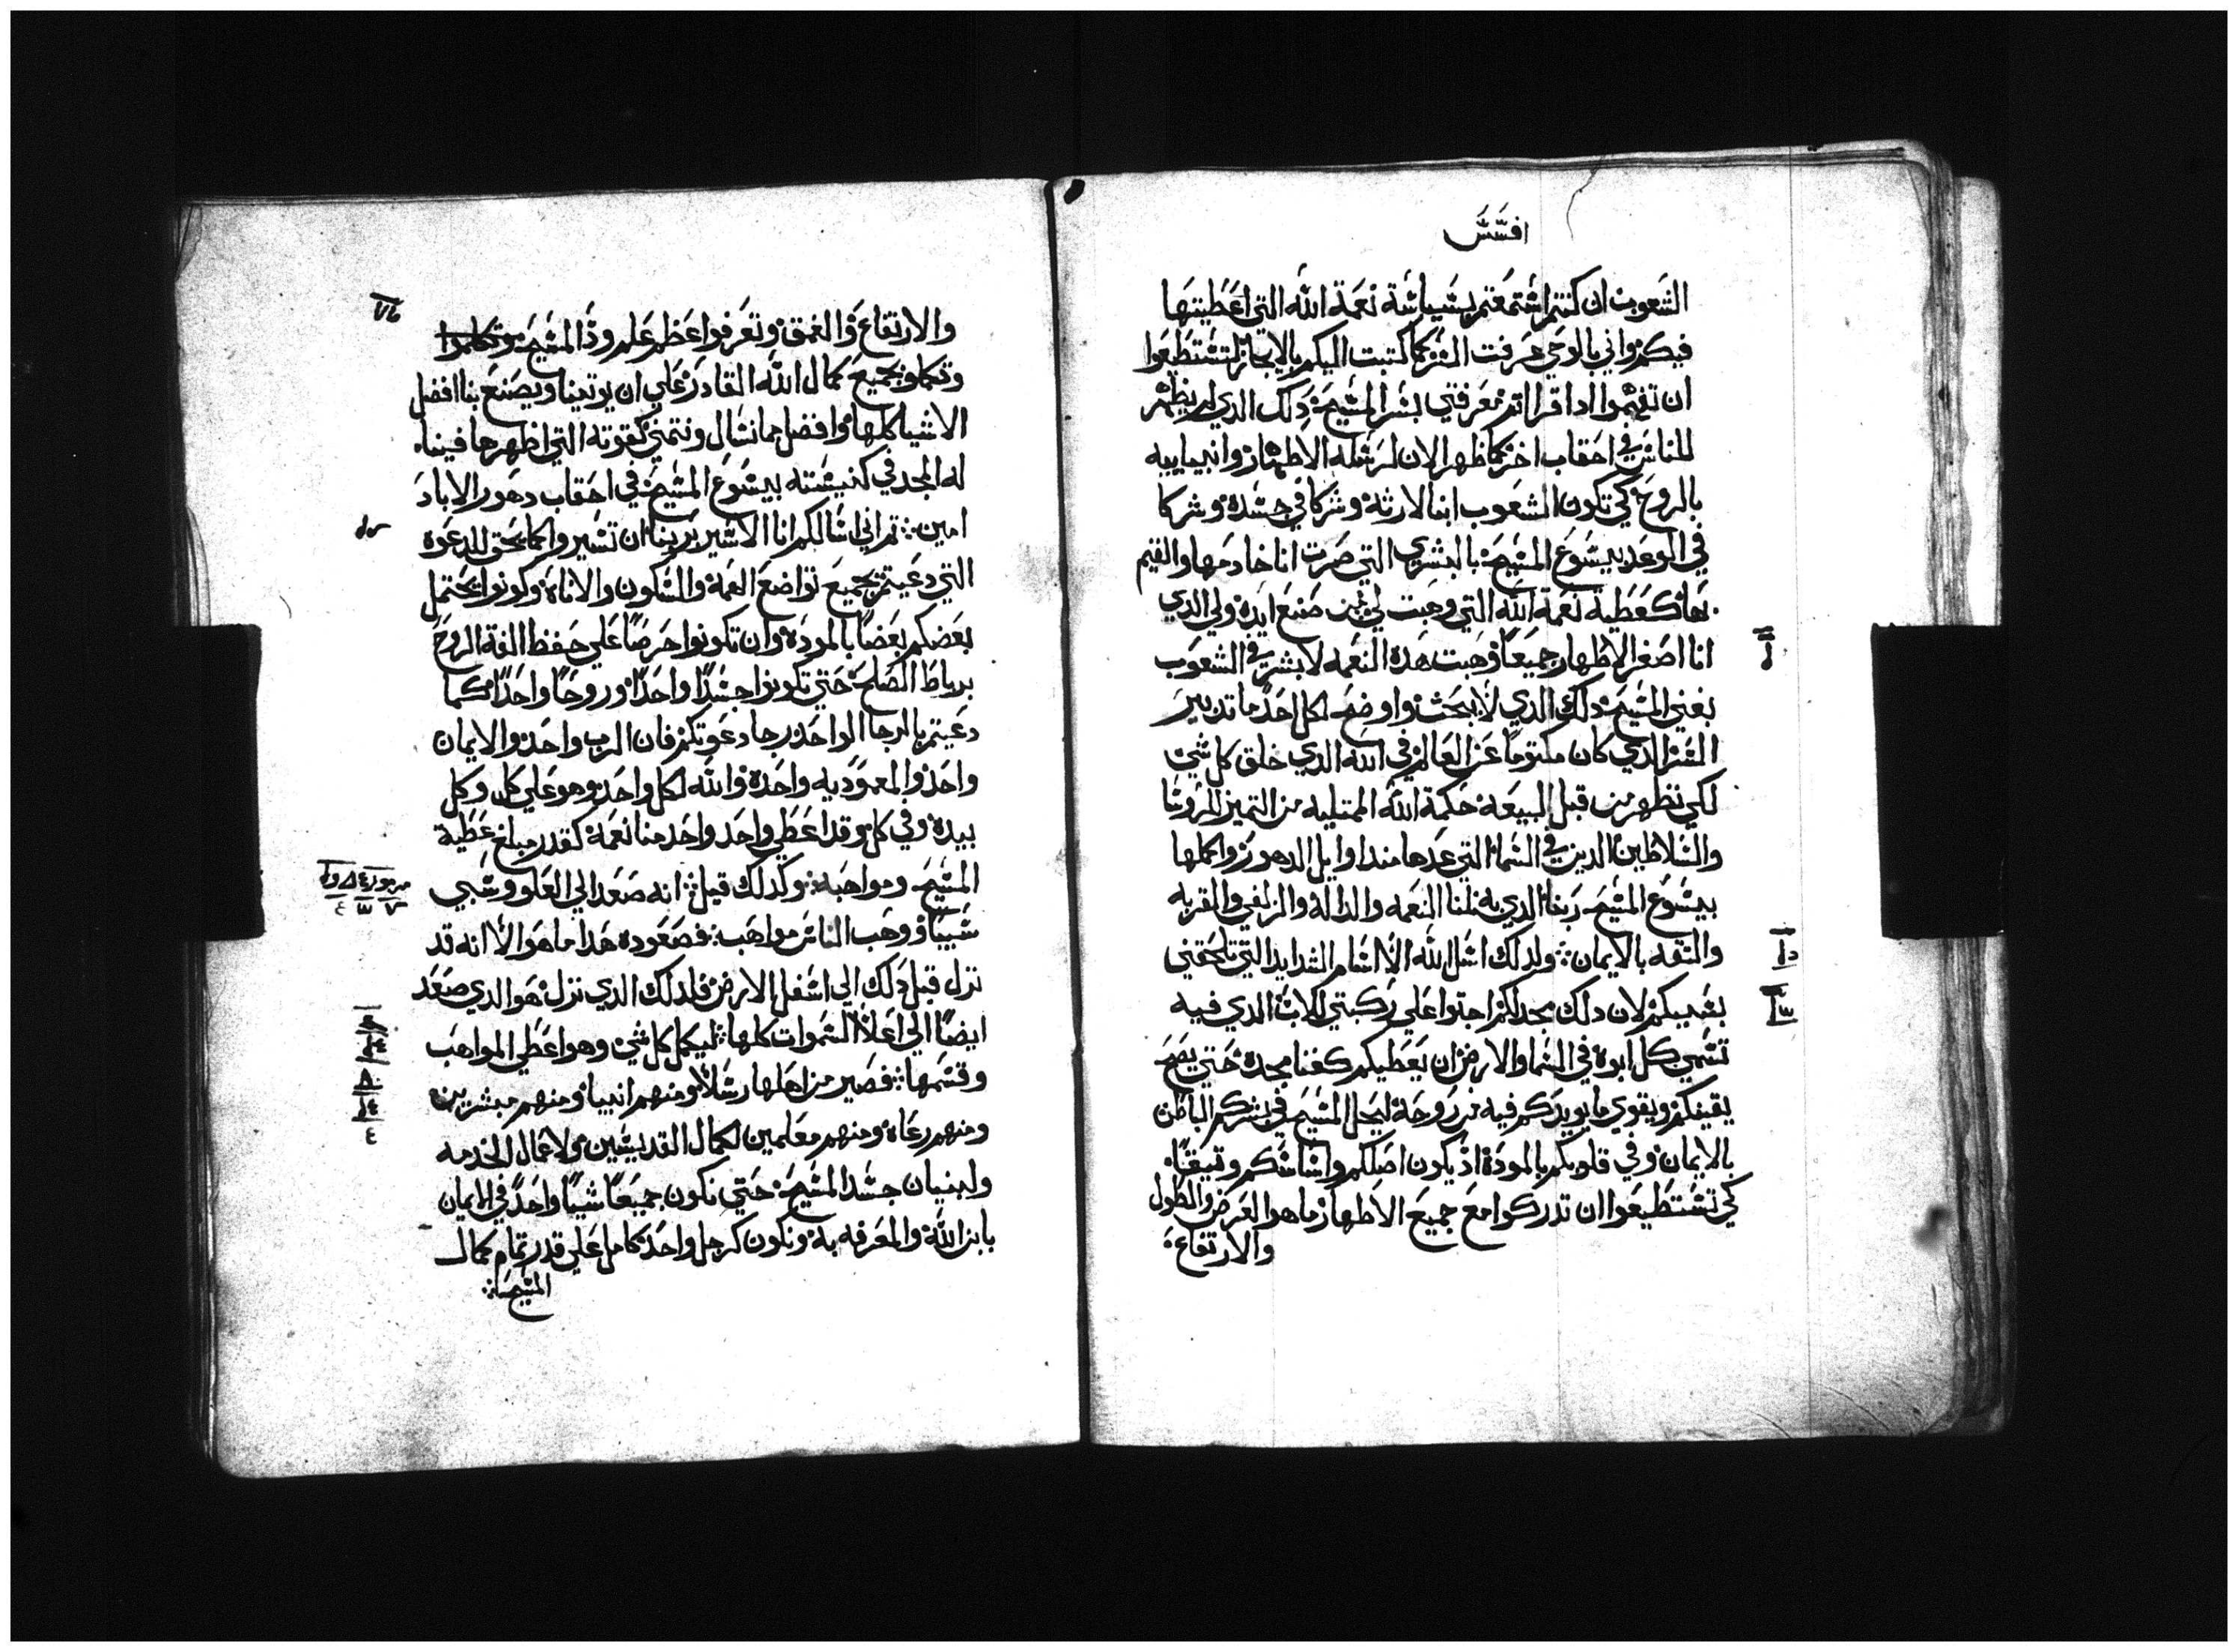 افسس
الشعوب ان كنتم اسمعتم بسياسة نعمة الله التي اعطيتها
فيكم واني بالوحي عرفت السر كما كتبت اليكم بالايجاز لتستطيعوا
ان تفهموا ادا قراتم معرفتي بسر المسيح دلك الدي لم يظهر
للناس في احقاب اخر كما ظهر الان لرسله الاطهار وانبيايه
بالروح كي تكون الشعوب ابنا لارثه وشركا في جسده وشركا
في الوعد بيسوع المسيح بالبشري التي صرت انا خادمها والقيم
بها كعطية نعمة الله التي وهبت لي من صنع ايده ولي الدي
انا اصغر الاطهار جميعا وهبت هده النعمه لابشر في الشعوب
بغني المسيح دلك الدي لا يبحث واوضح لكل احد ما تدبير
السر الدي كان مكتوما عن العالم في الله الدي خلق كل شي
لكي تظهر من قبل البيعه حكمة الله الممتليه من التميز للروسا
والسلاطين الدين في السما التي عدها مند اوايل الدهور واكملها
بيسوع المسيح ربنا الدي به نلنا النعمه والداله والزلفي والقربه
والتقه بالايمان ولدلك اسل الله الا اسام الشدايد التي تلحقني
بسببكم لان دلك مجد لكم اجتوا علي ركبتي للاب الدي فيه
تسمي كل ابوة في السما والارض ان يعطيكم كغنا مجده حتي يصح
يقينكم ويقوي ما يويدكم فيه من روحه ليحل المسيح في بشركم الباطن
بالايمان وفي قلوبكم بالموده اذ يكون اصلكم واساسكم وتيقا
كي تستطيعوا ان تدركوا مع جميع الاطهار ما هو العرض والطول
والارتفاع
والارتفاع والعمق وتعرفوا عظم علم وذ المسيح وتكلموا
وتكملوا بجميع كمال الله القادر علي ان يوتينا ويصنع بنا افضل
الاشيا كلها وافضل مما نسال ونتمني كقوته التي اظهرها فينا
له المجد في كنيسته بيسوع المسيح في احقاب دهور الاباد
امين تم اني اسالكم انا الاسير بربنا ان تسيروا كما يحق للدعوه
التي دعيتم بجميع تواضع الهمه والسكون والاناة وكونوا يحتمل
بعضكم بعضا بالموده وان تكونوا حرصا علي حفظ الفة الروح
برباط الصلح حتي تكونوا جسدا واحدا وروحا واحدا كما
دعيتم بالرجا الواحد رجا دعوتكم فان الرب واحد والايمان
واحد والمعموديه واحده والله لكل واحد وهو علي كل وكل
بيده وفي كل وقد اعطي واحد واحد منا نعمه كقدر مبلغ عطية
المسيح ومواهبه وكدلك قيل انه صعد الي العلو وسبي
سبيا ووهب الناس مواهب فصعوده هدا ما هو الا انه قد
نزل قبل دلك الي اسفل الارض فلدلك الدي نزل هو الدي صعد
ايضا الي اعلا السموات كلها ليكمل كل شي وهو اعطي المواهب
وقسمها فصير من اهلها رسلا ومنهم انبيا ومنهم مبشرين
ومنهم رعاة ومنهم معلمين لكمال القديسين ولاعمال الخدمه
ولبنيان جسد المسيح حتي نكون جميعا شيا واحدا في الايمان
بابن الله والمعرفه به ونكون كرجل واحد كامل علي قدر تمام كمال
المسيح